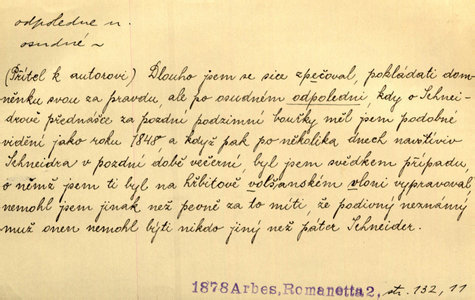 odpoledne n.
osudné ~
(Přítel k autorovi) Dlouho jsem se sice zpěčoval, pokládati dom-
něnku svou za pravdu, ale po osudném odpoledni, kdy o Schnei-
drově přednášce za pozdní podzimní bouřky měl jsem podobné
vidění jako roku 1848, a když pak po několika dnech navštíviv
Schneidra v pozdní době večerní, byl jsem svědkem případu
o němž jsem ti byl na hřbitově volšanském vloni vypravoval
nemohl jsem jinak než pevně za to míti, že podivný neznámý
muž onen nemohl býti nikdo jiný než páter Schneider.
1878 Arbes, Romanetta 2, str. 132, 11